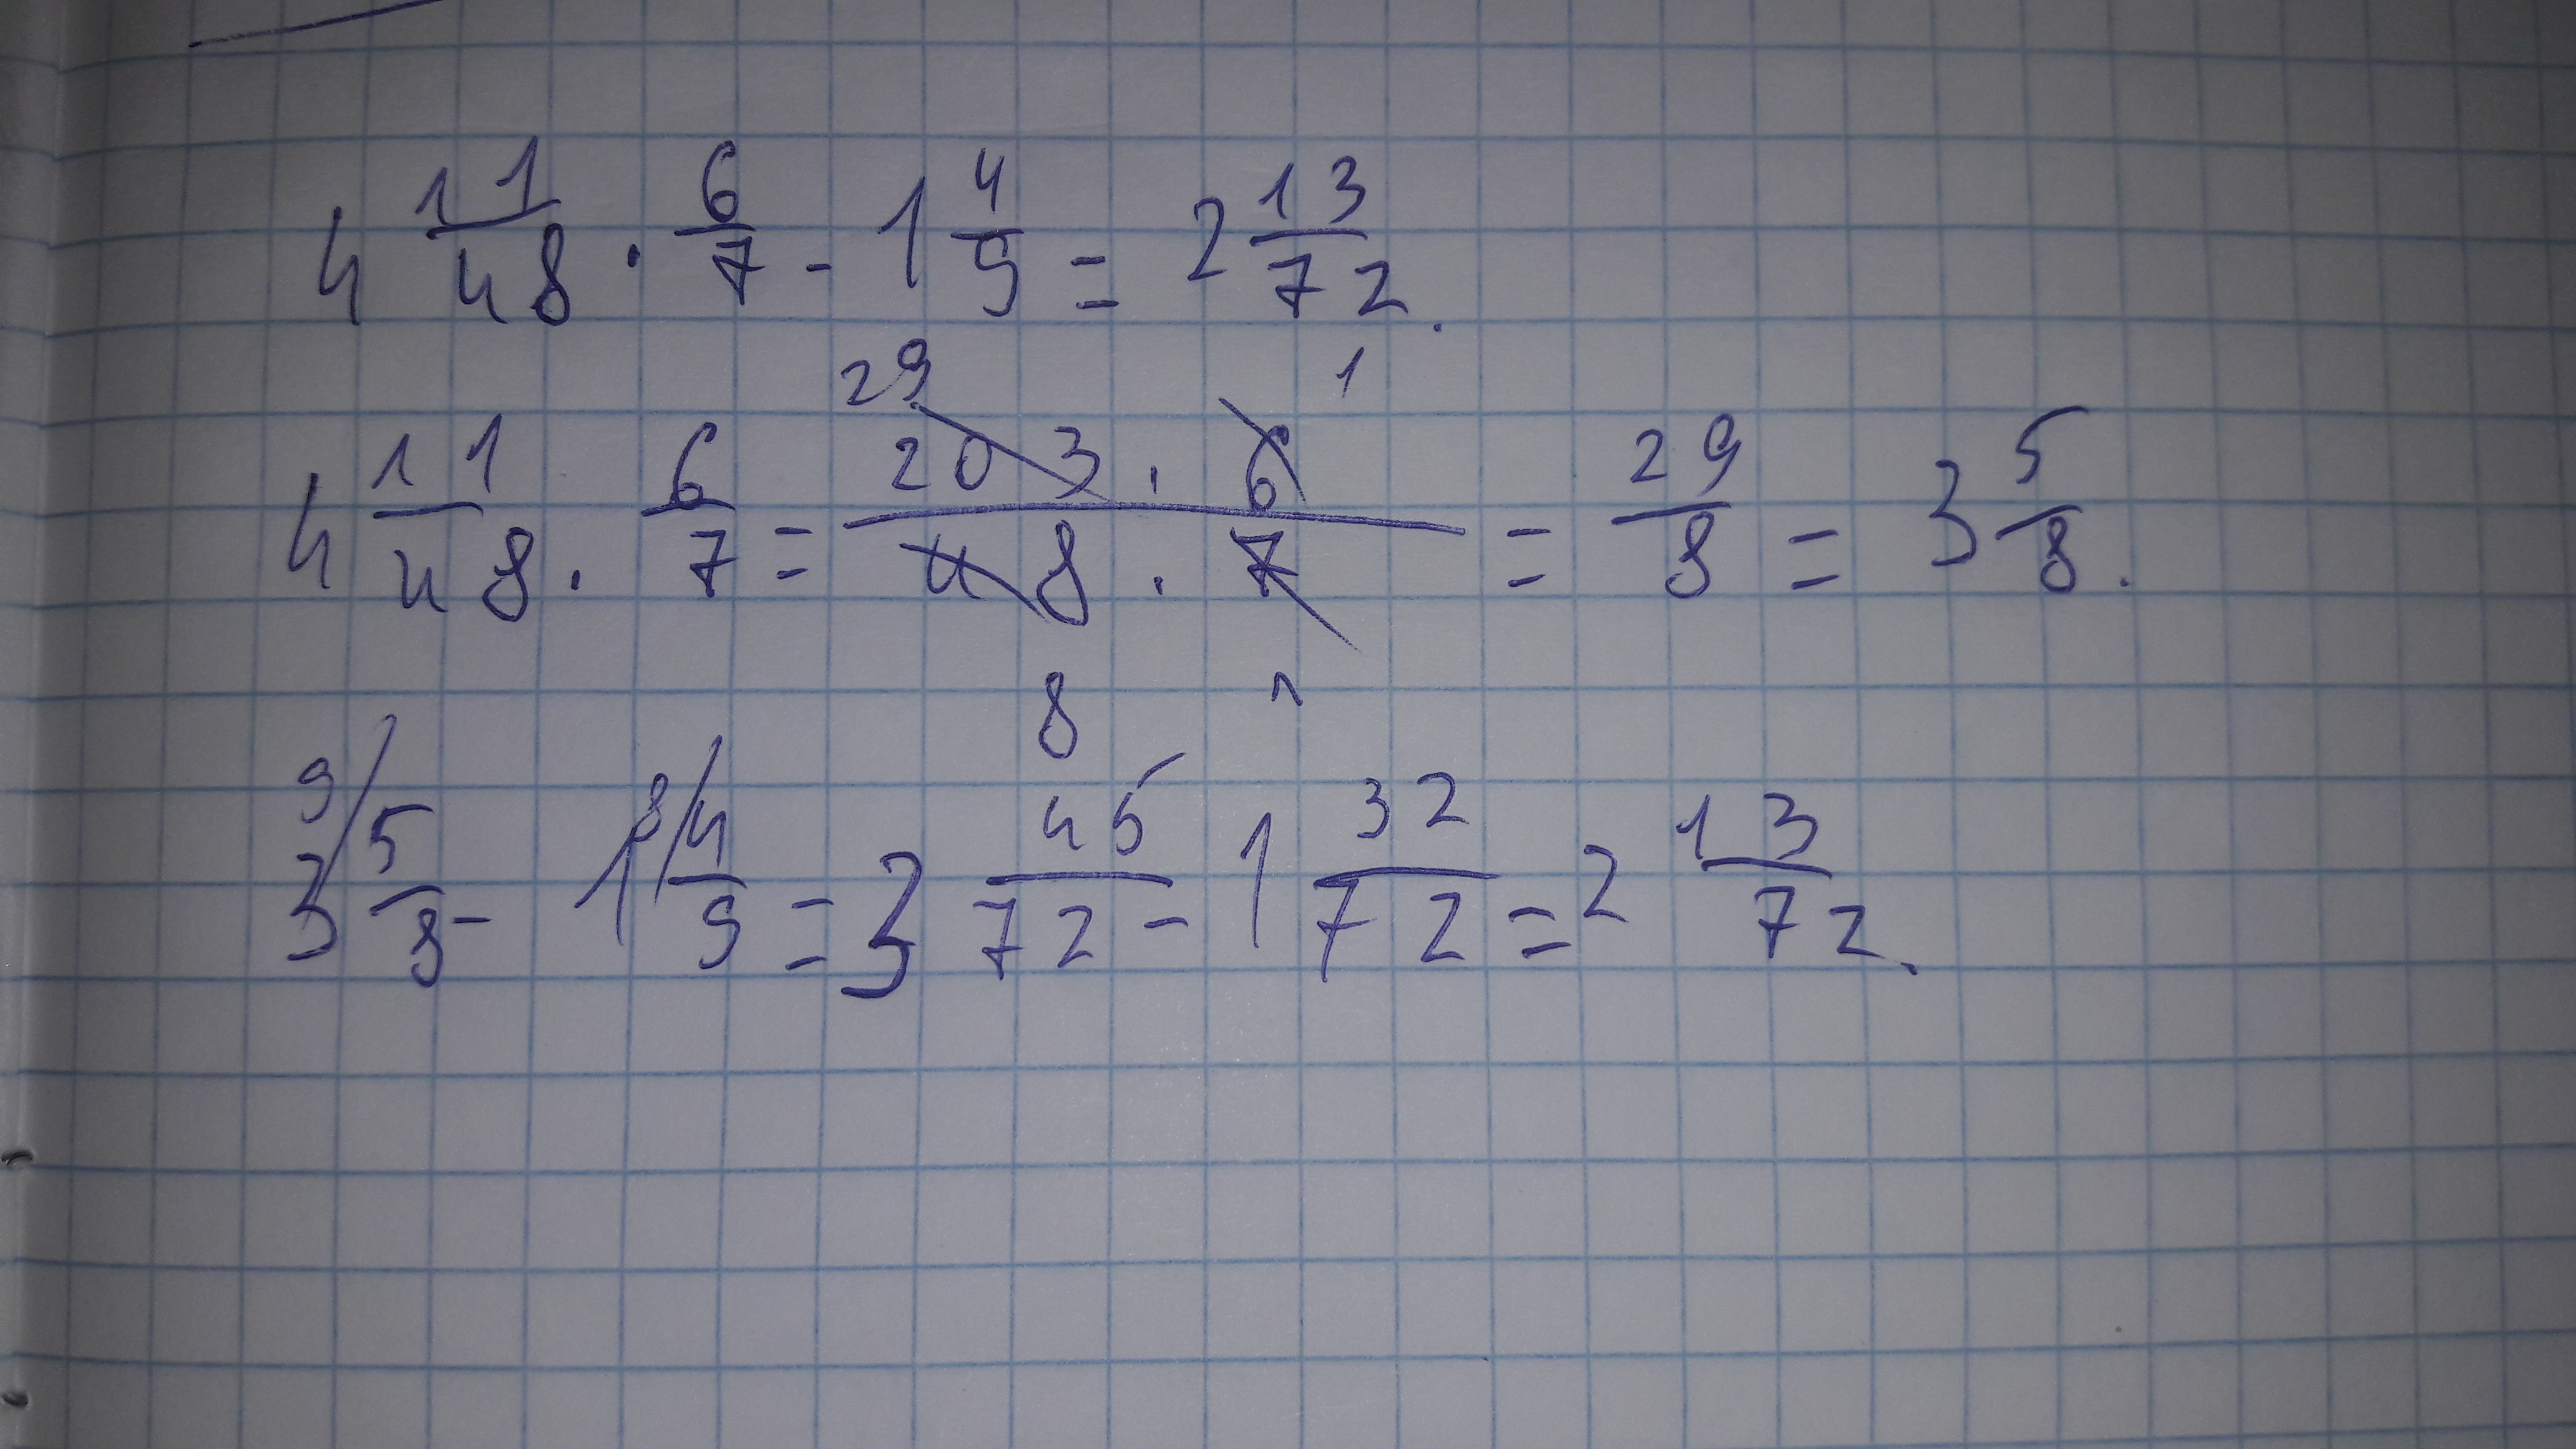 4 11/48 · 6/7 - 1 4/9 = 2 13/72.
4 11/48 · 6/7 = (203 · 6)/(48 · 7) (29, 1, 8, 1) = 29/8 = 3 5/8.
3 9/ 5/8 - 1 8/ 4/9 = 3 45/72 - 1 32/72 = 2 13/72.